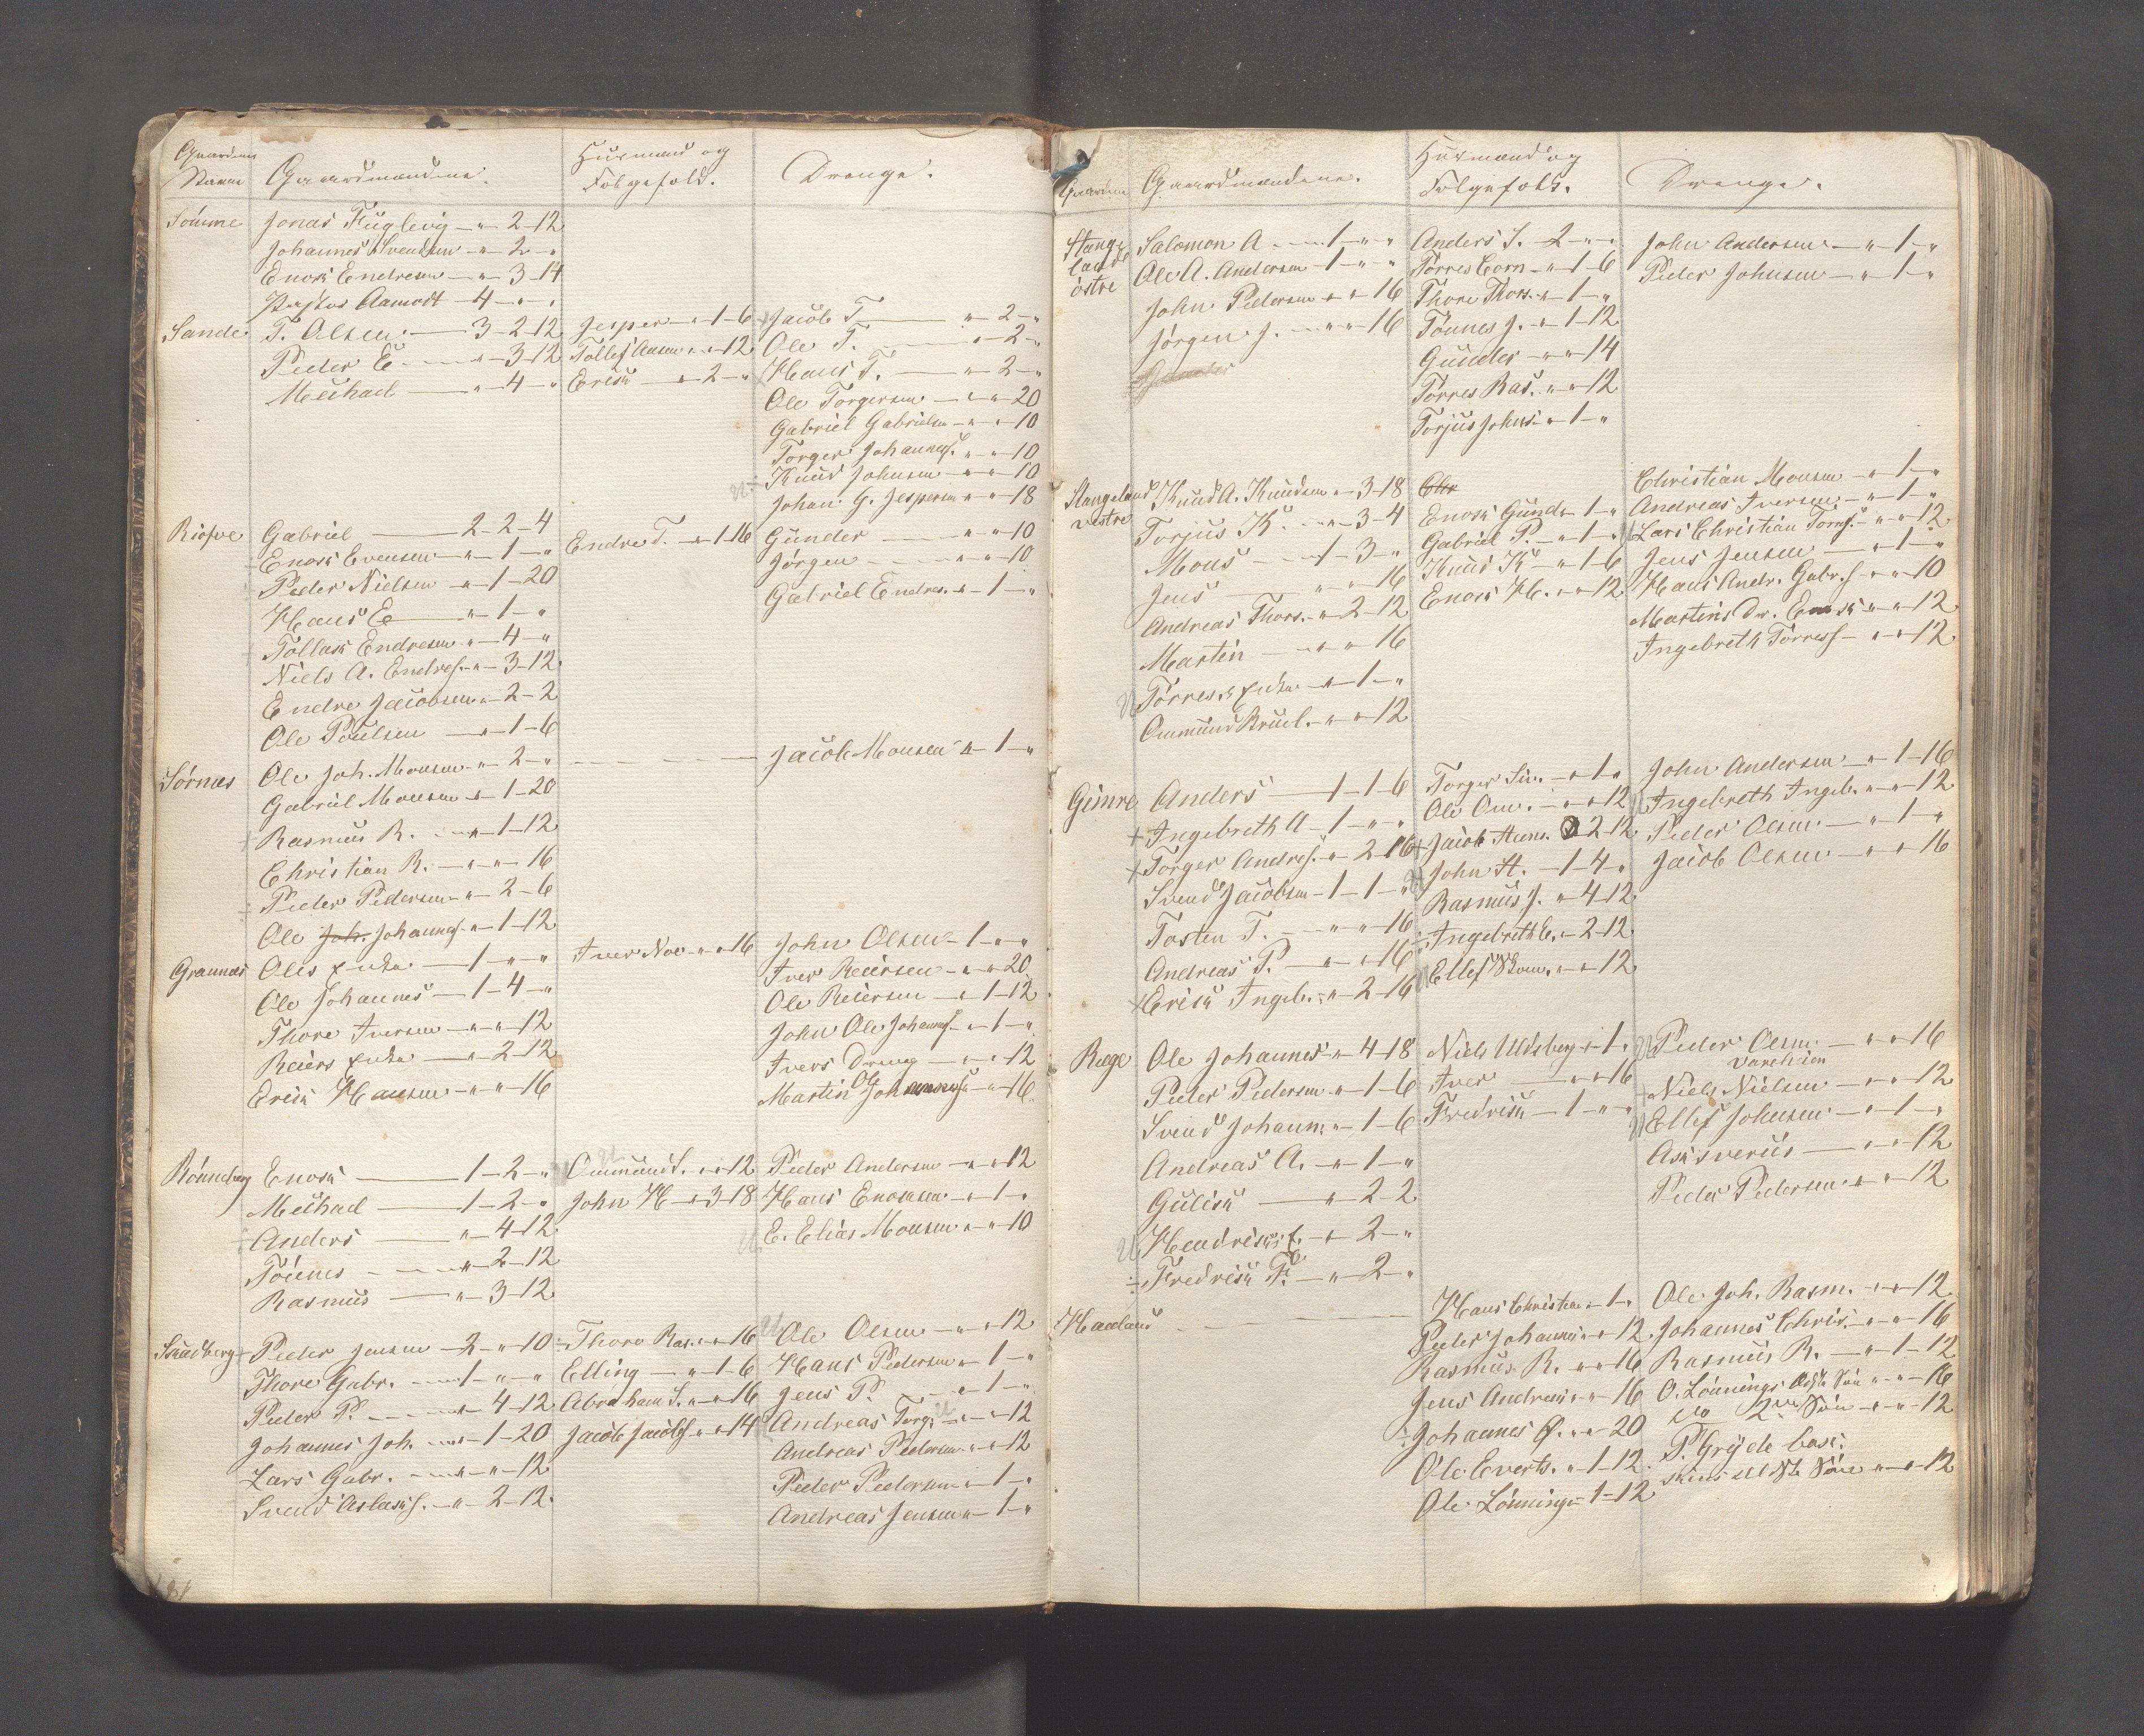 Gaardenes
Navne
Gaardmændene.
Huusmænd og
Følgefolk.
Drenge.
Sømme
Jonas Fuglevig - " 2-12
Johannes Svendsen - " 2 - "
Enok Endresen - " 3-14
Aamodt - 4 - " "
Sande
T. Olsen - 3-2-12
Jesper - " 1-6
Jacob T. - " 2 - "
Peder E - " 3-12
Tollef Aasen " " 12
Ole T. - " 2 - "
Michael - " 4 - "
Erich - " 2 - "
Hans T. - " 2 - "
Ole Torgersen - " " 20
Gabriel Gabrielsen - " " 10
Torger Johannes. " " 10
Knud Johnsen - " " 10
Johan G. Jespersen " " 18
Risøe
Gabriel - 2-2-4
Endre T. - " 1-16
Gunder - " " 10
Enok Evensen - " 1 - "
Jørgen - " " 10
Peder Nielsen - " 1-20
Gabriel Endres. - " 1 - "
Hans E - " 1 - "
Tollak Endresen " 4 - "
Niels A. Endres. - " 3-12
Endre Jacobsen " 2-2
Ole Poulsen - " 1-6
Sørnæs
Ole Joh. Monsen - " 2 - "
Jacob Monsen " 1 - "
Gabriel Monsen - " 1-20
Rasmus R. - " 1-12
Christian R. - " " 16
Peder Pedersen - " 2-6
Ole Joh. Johannes. " 1-12
Grannæs
Oles Enke - 1 - " "
Iver Noe " " 16
John Olsen - 1 - " "
Ole Johannes - 1-4 - "
Iver Reiersen - " " 20
Thore Iversen - " " 12
Ole Reiersen - " 1-12
Reiers Enke - " 2-12
John Ole Johannes. - " 1 - "
Erich Hansen - " " 16
Ivers Dreng - " " 12
Martin Ole Johannes. " " 16
Rønneberg
Enok - 1-2 - "
Ommund S. " " 12
Peder Andersen - " " 12
Michael - 1-2 - "
John H - " 3-18
Hans Enoksen - " 1 - "
Anders - " 4-12
E. Elias Monsen " " 10
Tønnes - " 2-12
Rasmus - " 3-12
Sundberg
Peder Jensen - 2 - " 10
Thore Ras. " " 16
Ole Olsen - " " 12
Thore Gabr. - 1 - " "
Elling - " 1-6
Hans Pedersen " 1 - "
Peder P. - " 4-12
Abraham S. " " 16
Jens P. - " 1 - "
Johannes Joh. - " 1-20
Jacob Jacobs. " " 14
Andreas Torg. - " " 12
Lars Gabr. - " " 12
Andreas Pedersen " " 12
Svend Aslaks. - " 2-12
Peder Pedersen - " 1 - "
Andreas Jensen " 1 - "
Gaardene
Gaardmændene.
Huusmænd og
Følgefolk.
Drenge.
Stange-
land
østre
Salomon A - 1 - " "
Anders S. 2 - " "
John Andersen - " 1 - "
Ole A. Andersen - 1 - " "
Tørres Corn - " 1-6
Peder Johnsen - " 1 - "
John Pedersen " " 16
Thore Thors. " 1 - "
Jørgen J. - " " 16
Tønnes J. " 1-12
Gunder
Gunder - " " 14
Tørres Ras. " " 12
Torjus Johns " 1 - "
Stangeland
vestre
Knud A. Knudsen " 3-18
Chr
Christian Monsen - " 1 - "
Torjus K. - " 3-4
Enok Gund - 1 - "
Andreas Iversen - " 1 - "
Mons - 1-3 - "
Gabriel P. - " 1 - "
Lars Christian Tørres. - " " 12
Jens " " 16
Knud K - " 1-6
Jens Jensen - " 1 - "
Andreas Thors. - " 2-12
Enok H. - " " 12
Hans Andr. Gabr.s. - " " 10
Martin - " " 16
Martins Dr. Enok " " 12
Tørres's Enke - " 1 - "
Ingebreth Tørress - " " 12
Ommund Kruel. - " " 12
Gimre
Anders - 1-1-6
Torger Siv. - " 1 "
John Andersen - " 1-16
Ingebreth A - 1 - " "
Ole Om. - " " 12
Ingebreth Ingeb. - " " 12
Torger Andres. " 2-16
Jacob " 2-12
Peder Olsen - " 1 - "
Svend Jacobsen - 1-1 - "
John H. - 1-4 - "
Jacob Olsen - " " 16
Tosten T. - " " 16
Rasmus J. " 4-12
Andreas P. - " " 16
Ingebreth C. - 2-12
Erich Ingeb. - " 2-16
Ellef " " 12
Ræge
Ole Johannes " 4-18
Niels Ulvsberg " 1 "
Peder Olsen - " " 16
Peder Pedersen - " 1-6
Iver - " " 16
Niels Nielsen - " " 12
Svend Johann. " 1-6
Fredrich - 1 - " "
Ellef Johnsen - " 1 - "
Andreas A. - " 1 - "
Asksverus - " " 12
Gulich - " 2-2
Peder Pedersen " " 12
Hendrichs E. - " 2 - "
Fredrich F. - " 2 - "
Haaland
Hans Christian - 1 "
Ole Joh. Rasm. - " " 12
Peder Johannes " " 12
Johannes Chris. - " " 16
Rasmus R. " " 16
Rasmus R. - " 1-12
Jens Andreas " " 16
O. Lønnings ældste Søn " " 16
Johannes Ø. " " 20
do 2den Søn - " " 12
Ole Everts. " 1-12
P. Gryde bak:
Ole Lønninge 1-12
kens ældste Søn " " 12